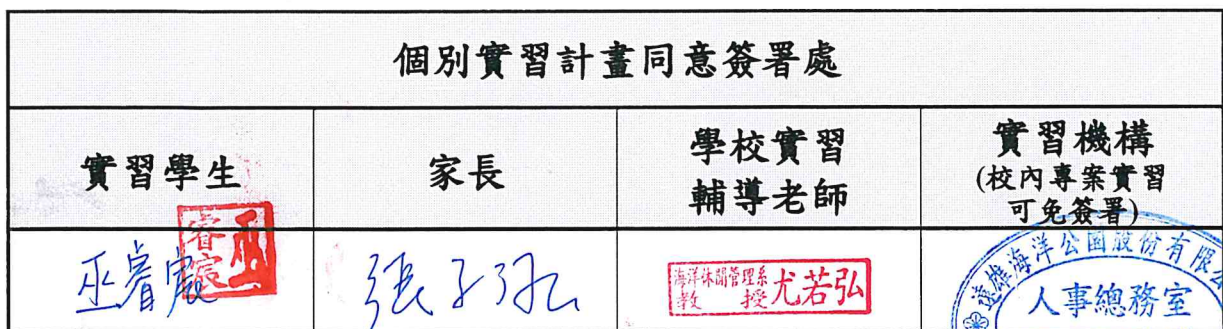 個別實習計畫同意簽署處
實習學生
家長
學校實習
輔導老師
實習機構
(校內專案實習
可免簽署)
巫睿宸
巫睿宸
海洋休閒管理系
教 授 尤若弘
遠雄海洋公園股份有限公
人事總務室